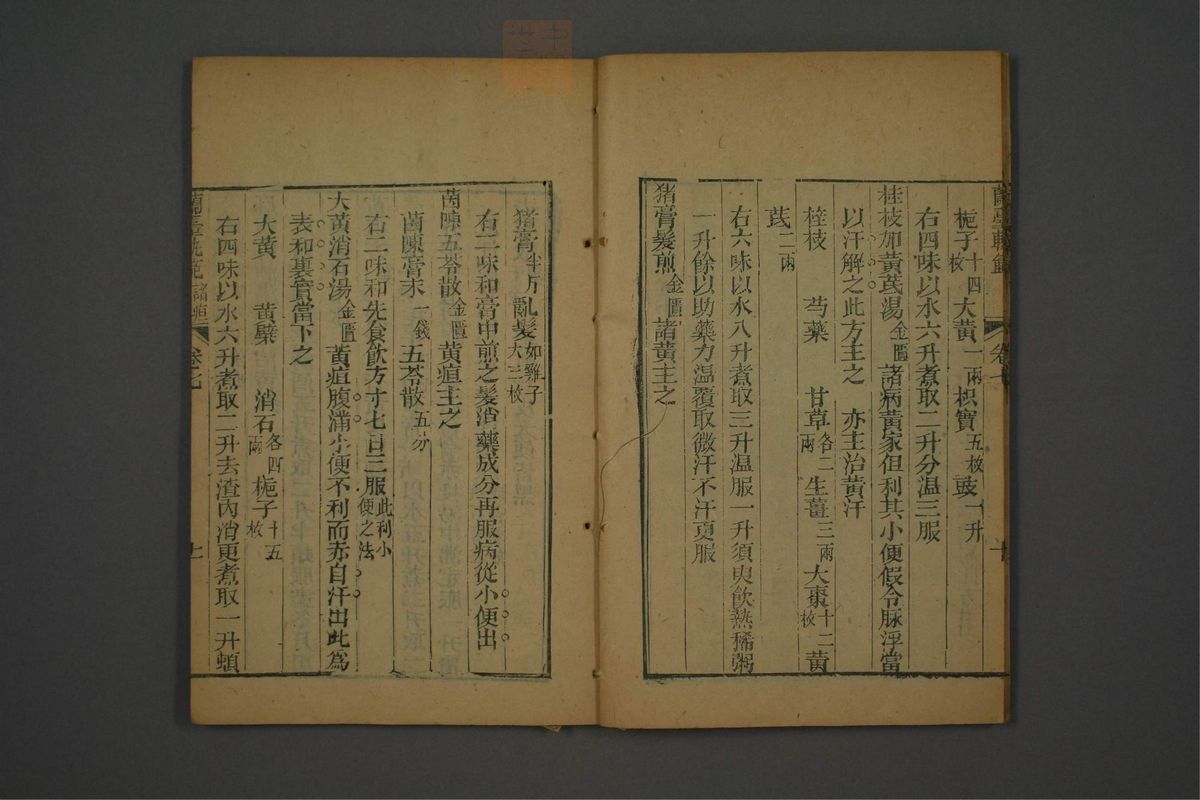 梔子十四枚大黃一兩枳實五枚豉一升
右四味以水六升煮取二升分温三服
桂枝加黃芪湯金匱諸病黃家但利其小便假令脉浮當
以汗解之此方主之　亦主治黃汗
桂枝　芍藥　甘草各二兩生薑三兩大棗十二枚黃
芪二兩
右六味以水八升煮取三升温服一升須臾飲熱稀粥
一升餘以助藥力温覆取微汗不汗更服
猪膏髮煎金匱諸黃主之
猪膏半斤亂髮如雞子大三枚
右二味和膏中煎之髮消藥成分再服病從小便出
茵陳五苓散金匱黃疸主之
茵陳膏末一錢五苓散五分
右二味和先食飲方寸七日三服此利小便之法
大黃消石湯金匱黃疸腹滿小便不利而赤自汗出此爲
表和裏實當下之
大黃　黃檗　消石各四兩梔子十五枚
右四味以水六升煮取二升去渣內消更煮取一升頓